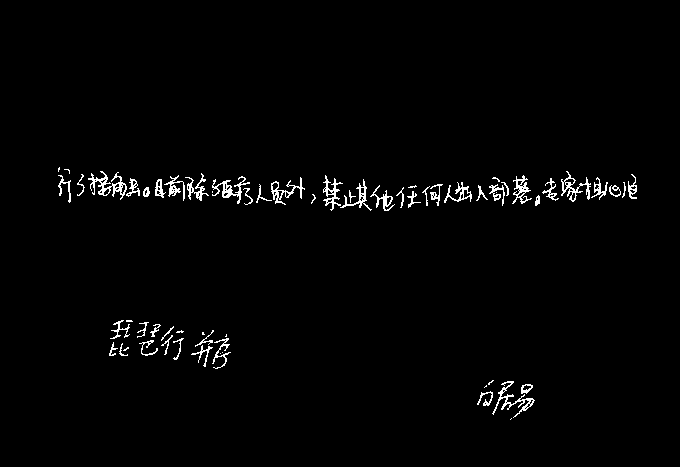 行了接触。目前除医疗人员外,禁止其他任何人出入部落。专家组
琵琶行 并序
白居易